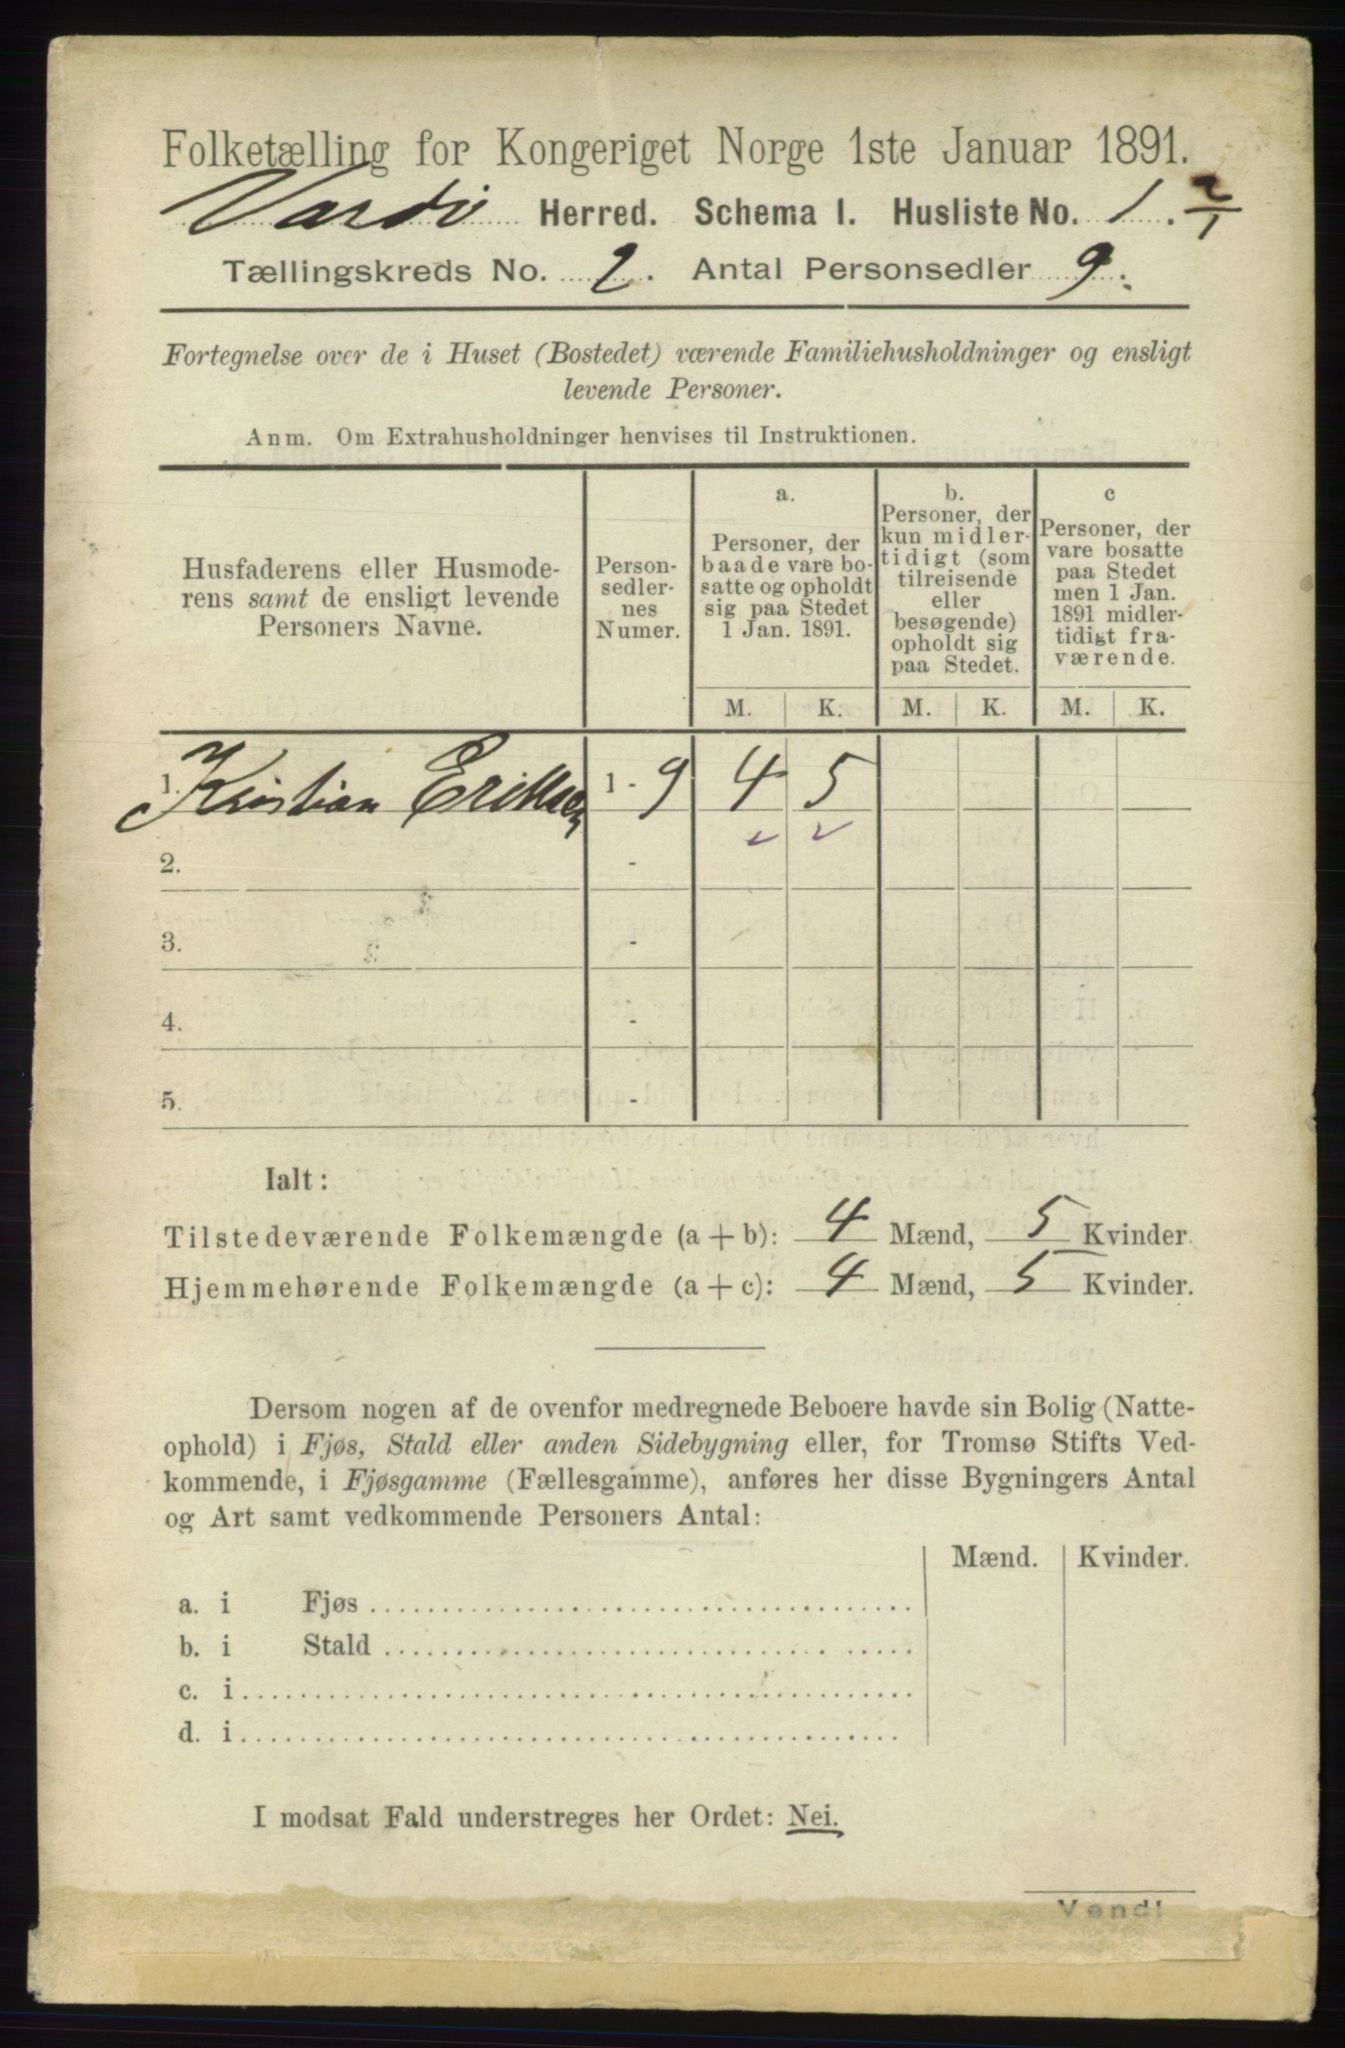 Folketælling for Kongeriget Norge 1ste Januar 1891.
Vardö Herred. Schema I. Husliste No. 1. 2/1
Tællingskreds No. 2. Antal Personsedler 9.
Fortegnelse over de i Huset (Bostedet) værende Familiehusholdninger og ensligt
levende Personer.
Anm. Om Extrahusholdninger henvises til Instruktionen.
Husfaderens eller Husmode-
rens samt de ensligt levende
Personers Navne.
Person-
sedler-
nes
Numer.
a.
Personer, der
baade vare bo-
satte og opholdt
sig paa Stedet
1 Jan. 1891.
b.
Personer, der
kun midler-
tidigt (som
tilreisende
eller
besøgende)
opholdt sig
paa Stedet.
c
Personer, der
vare bosatte
paa Stedet
men 1 Jan.
1891 midler-
tidigt fra-
værende.
M. K. M. K. M. K.
1. Kristian Eriksen 1 - 9 4 5
2. -
3. -
4. -
5. -
Ialt:
Tilstedeværende Folkemængde (a + b): 4 Mænd, 5 Kvinder.
Hjemmehørende Folkemængde (a + c): 4 Mænd, 5 Kvinder.
Dersom nogen af de ovenfor medregnede Beboere havde sin Bolig (Natte-
ophold) i Fjøs, Stald eller anden Sidebygning eller, for Tromsø Stifts Ved-
kommende, i Fjøsgamme (Fællesgamme), anføres her disse Bygningers Antal
og Art samt vedkommende Personers Antal:
Mænd. Kvinder.
a. i Fjøs
b. i Stald
c. i
d. i
I modsat Fald understreges her Ordet: Nei.
Vend!